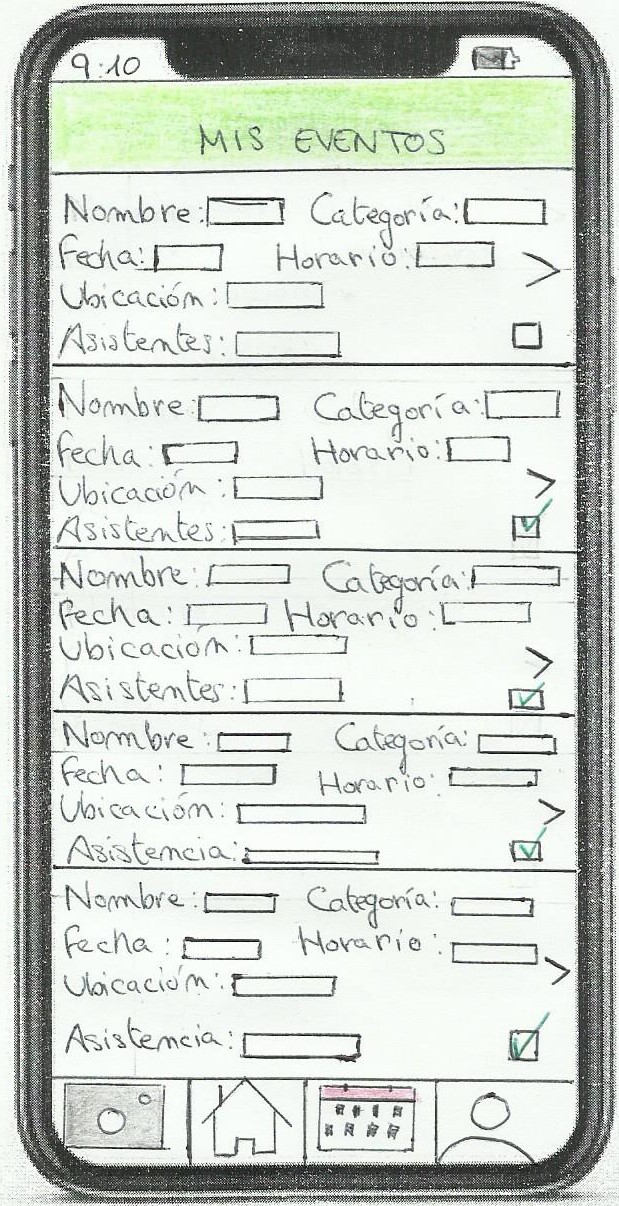 9:10
MIS EVENTOS
Nombre: Categoría:
Fecha: Horario:
Ubicación:
Asistentes:
Nombre: Categoría:
Fecha: Horario:
Ubicación:
Asistentes:
Nombre: Categoría:
Fecha: Horario:
Ubicación:
Asistentes:
Nombre: Categoría:
Fecha: Horario:
Ubicación:
Asistencia:
Nombre: Categoría:
Fecha: Horario:
Ubicación:
Asistencia: